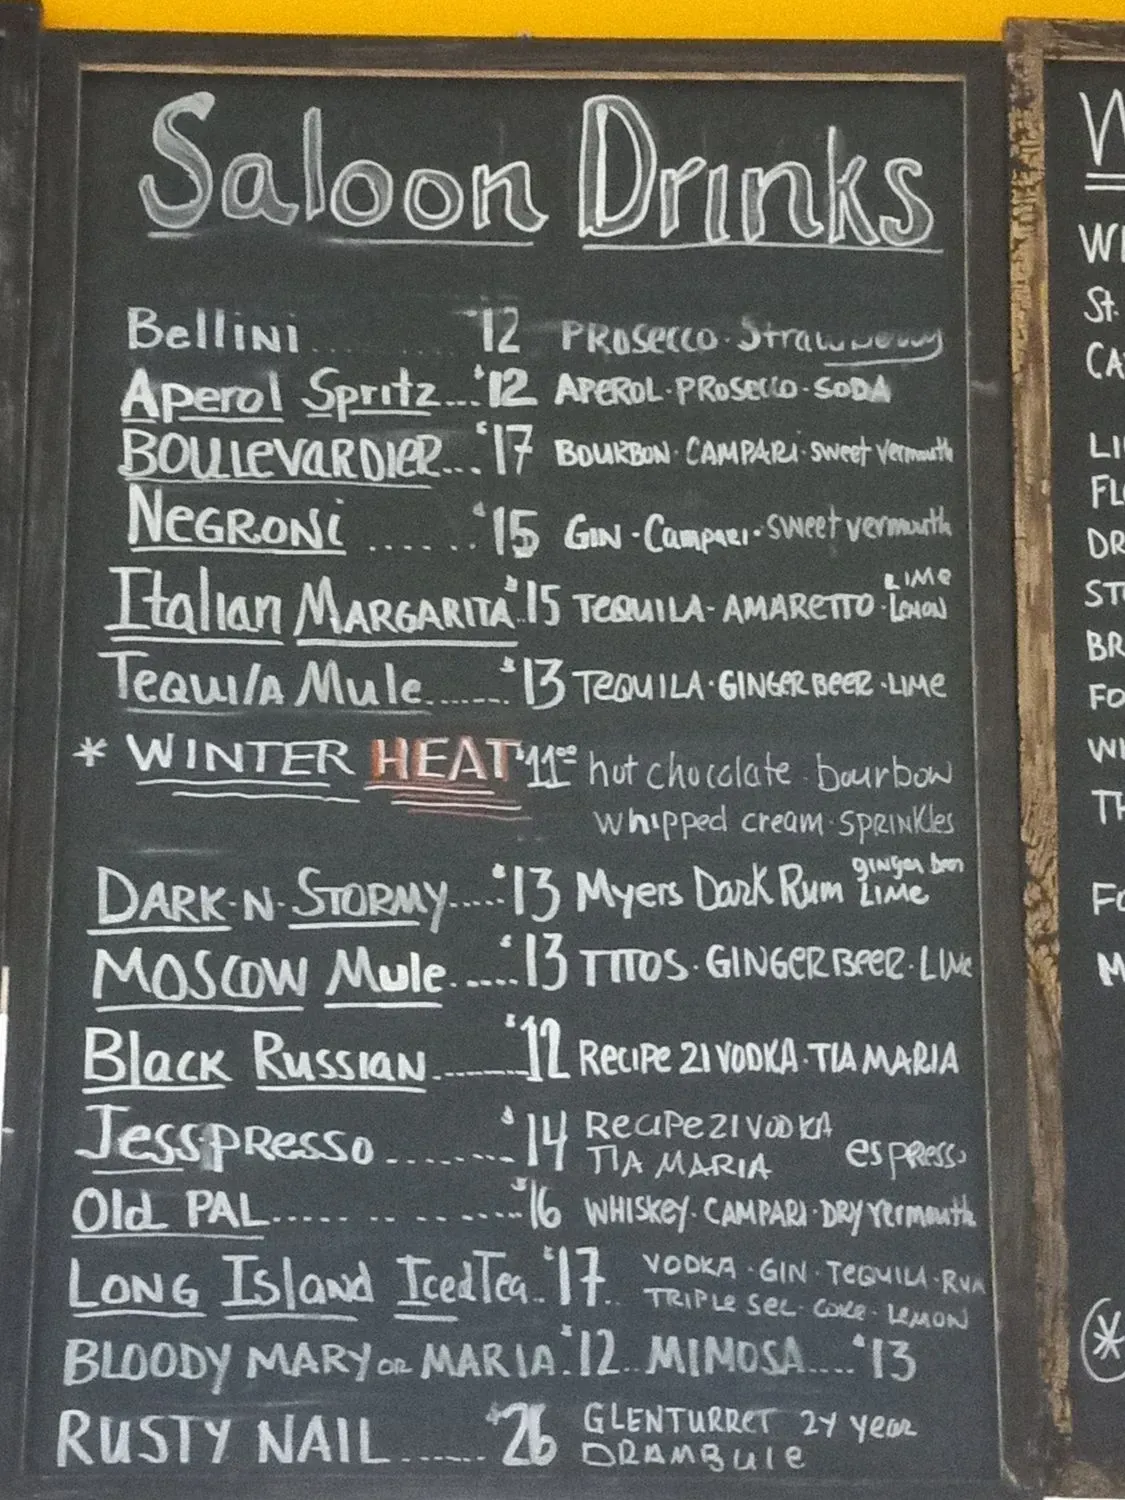 Saloon Drinks
Bellini ........ 12 Prosecco · Strawberry
Aperol Spritz...$12 APEROL · PROSECCO · SODA
BOULEVARDIER...$17 BOURBON · CAMPARI · sweet vermouth
NEGRONI ...... $15 GIN · Campari · sweet vermouth
Italian MARGARITA $15 TEQUILA - AMARETTO · LIME
LEMON
Tequila Mule......$13 TEQUILA · GINGER BEER · LIME
* WINTER HEAT $11.00 hot chocolate · bourbon
whipped cream · SPRINKles
DARK-N-STORMY.....$13 Myers Dark Rum ginger beer
LIME
MOSCOW Mule......$13 TITOS · GINGER BEER · LIME
Black Russian.......$12 Recipe 21 VODKA · TIA MARIA
Jesspresso ........$14 Recipe 21 VODKA
TIA MARIA espresso
Old PAL..............$16 WHISKEY · CAMPARI · DRY vermouth
LONG Island Iced Tea..$17.. VODKA · GIN · TEQUILA · RUM
TRIPLE SEC · COKE · LEMON
BLOODY MARY OR MARIA.$12..MIMOSA....$13
RUSTY NAIL ......$26 GLENTURRET 24 year
DRAMBUIE
W
WI
St.
CA
LI
FL
DR
ST
BR
FO
WI
TH
FO
M
*